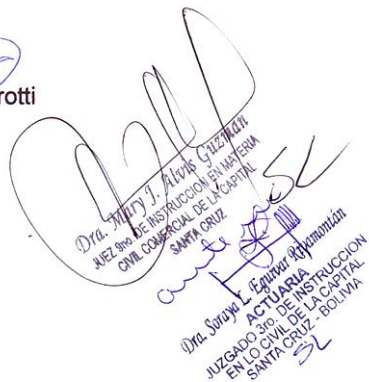 rotti
Dra. Mary J. Alvis Guzmán
JUEZ 3ro. DE INSTRUCCION EN MATERIA
CIVIL COMERCIAL DE LA CAPITAL
SANTA CRUZ
ante
Dra. Soraya E. Eguivar
ACTUARIA
JUZGADO 3ro. DE INSTRUCCION
EN LO CIVIL DE LA CAPITAL
SANTA CRUZ - BOLIVIA